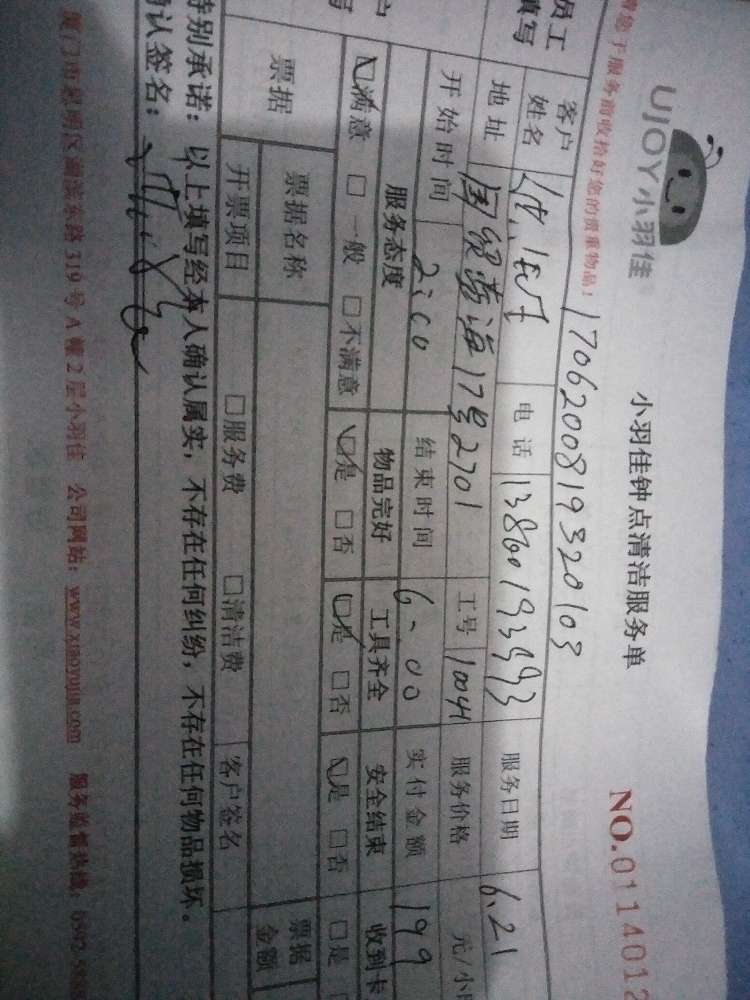 UJOY小羽佳
小羽佳钟点清洁服务单
NO.0114012
请您于服务前收拾好您的贵重物品!
170620081932 0103
员工填写
客户姓名 电话 服务日期 6.21
地址 国贸蓝海17号2701 工号 10041 服务价格 元/小时
开始时间 2:00 结束时间 6:00 实付金额 199
服务态度 物品完好 工具齐全 安全结束 收到卡
☑满意 □一般 □不满意 ☑是 □否 ☑是 □否 ☑是 □否 □是
票据 票据名称 票据金额
开票项目 □服务费 □清洁费 客户签名
特别承诺:以上填写经本人确认属实,不存在任何纠纷,不存在任何物品损坏。
确认签名:
厦门市思明区湖滨东路319号A幢2层小羽佳 公司网站:www.xiaoyujia.com 服务监督热线:0592-5888